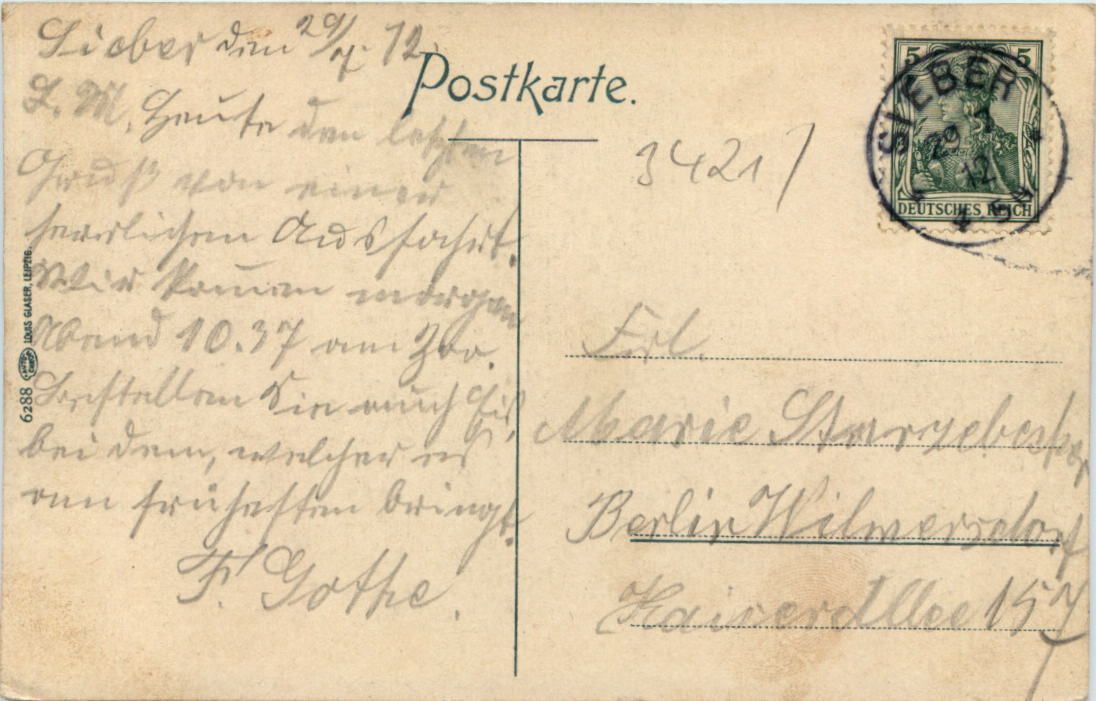 Sieber den 29/7. 12.
L. M. Heute den letzten
Gruß von einer
herrlichen Ausfahrt.
Wir kommen morgen
Abend 10.37 am Zoo.
Bestellen Sie auch Eis,
bei dem, welcher es
am frühesten bringt.
F. Gothe.
Postkarte.
3421/
5 5
SIEBER
29 7 12
4-5 N
DEUTSCHES REICH
Frl.
Marie
Berlin Wilmersdorf
Kaiserallee 157
6288 LOUIS GLASER, LEIPZIG.